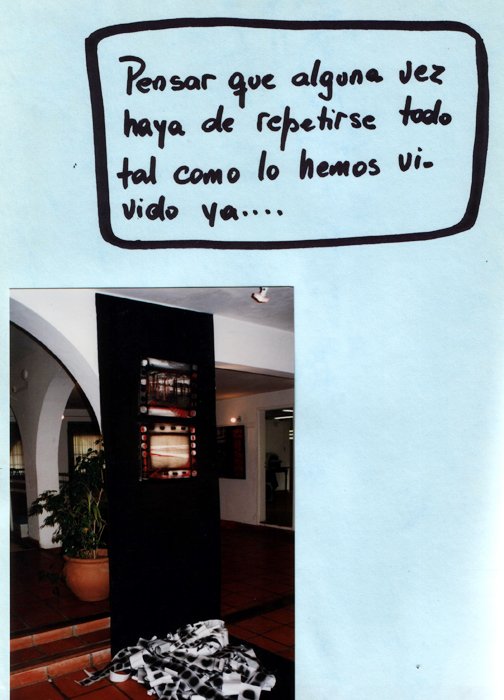 Pensar que alguna vez
haya de repetirse todo
tal como lo hemos vi-
vido ya....